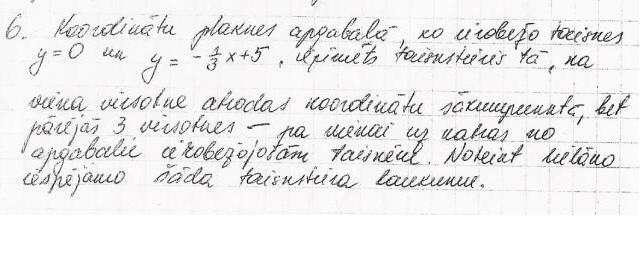 6. Koordinātu plaknes apgabalā, ko ierobežo taisnes
y=0 un y = -1/3 x+5, iepilnēts taisnstūris tā, ka
viena virsotne atrodas koordinātu sākumpunktā, bet
pārējās 3 virsotnes – pa vienai uz katras no
apgabalu ierobežojošām taisnēm. Noteikt lielāko
iespējamo šāda taisnstūra laukumu.